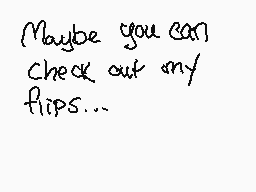 Maybe you can
check out my
flips...